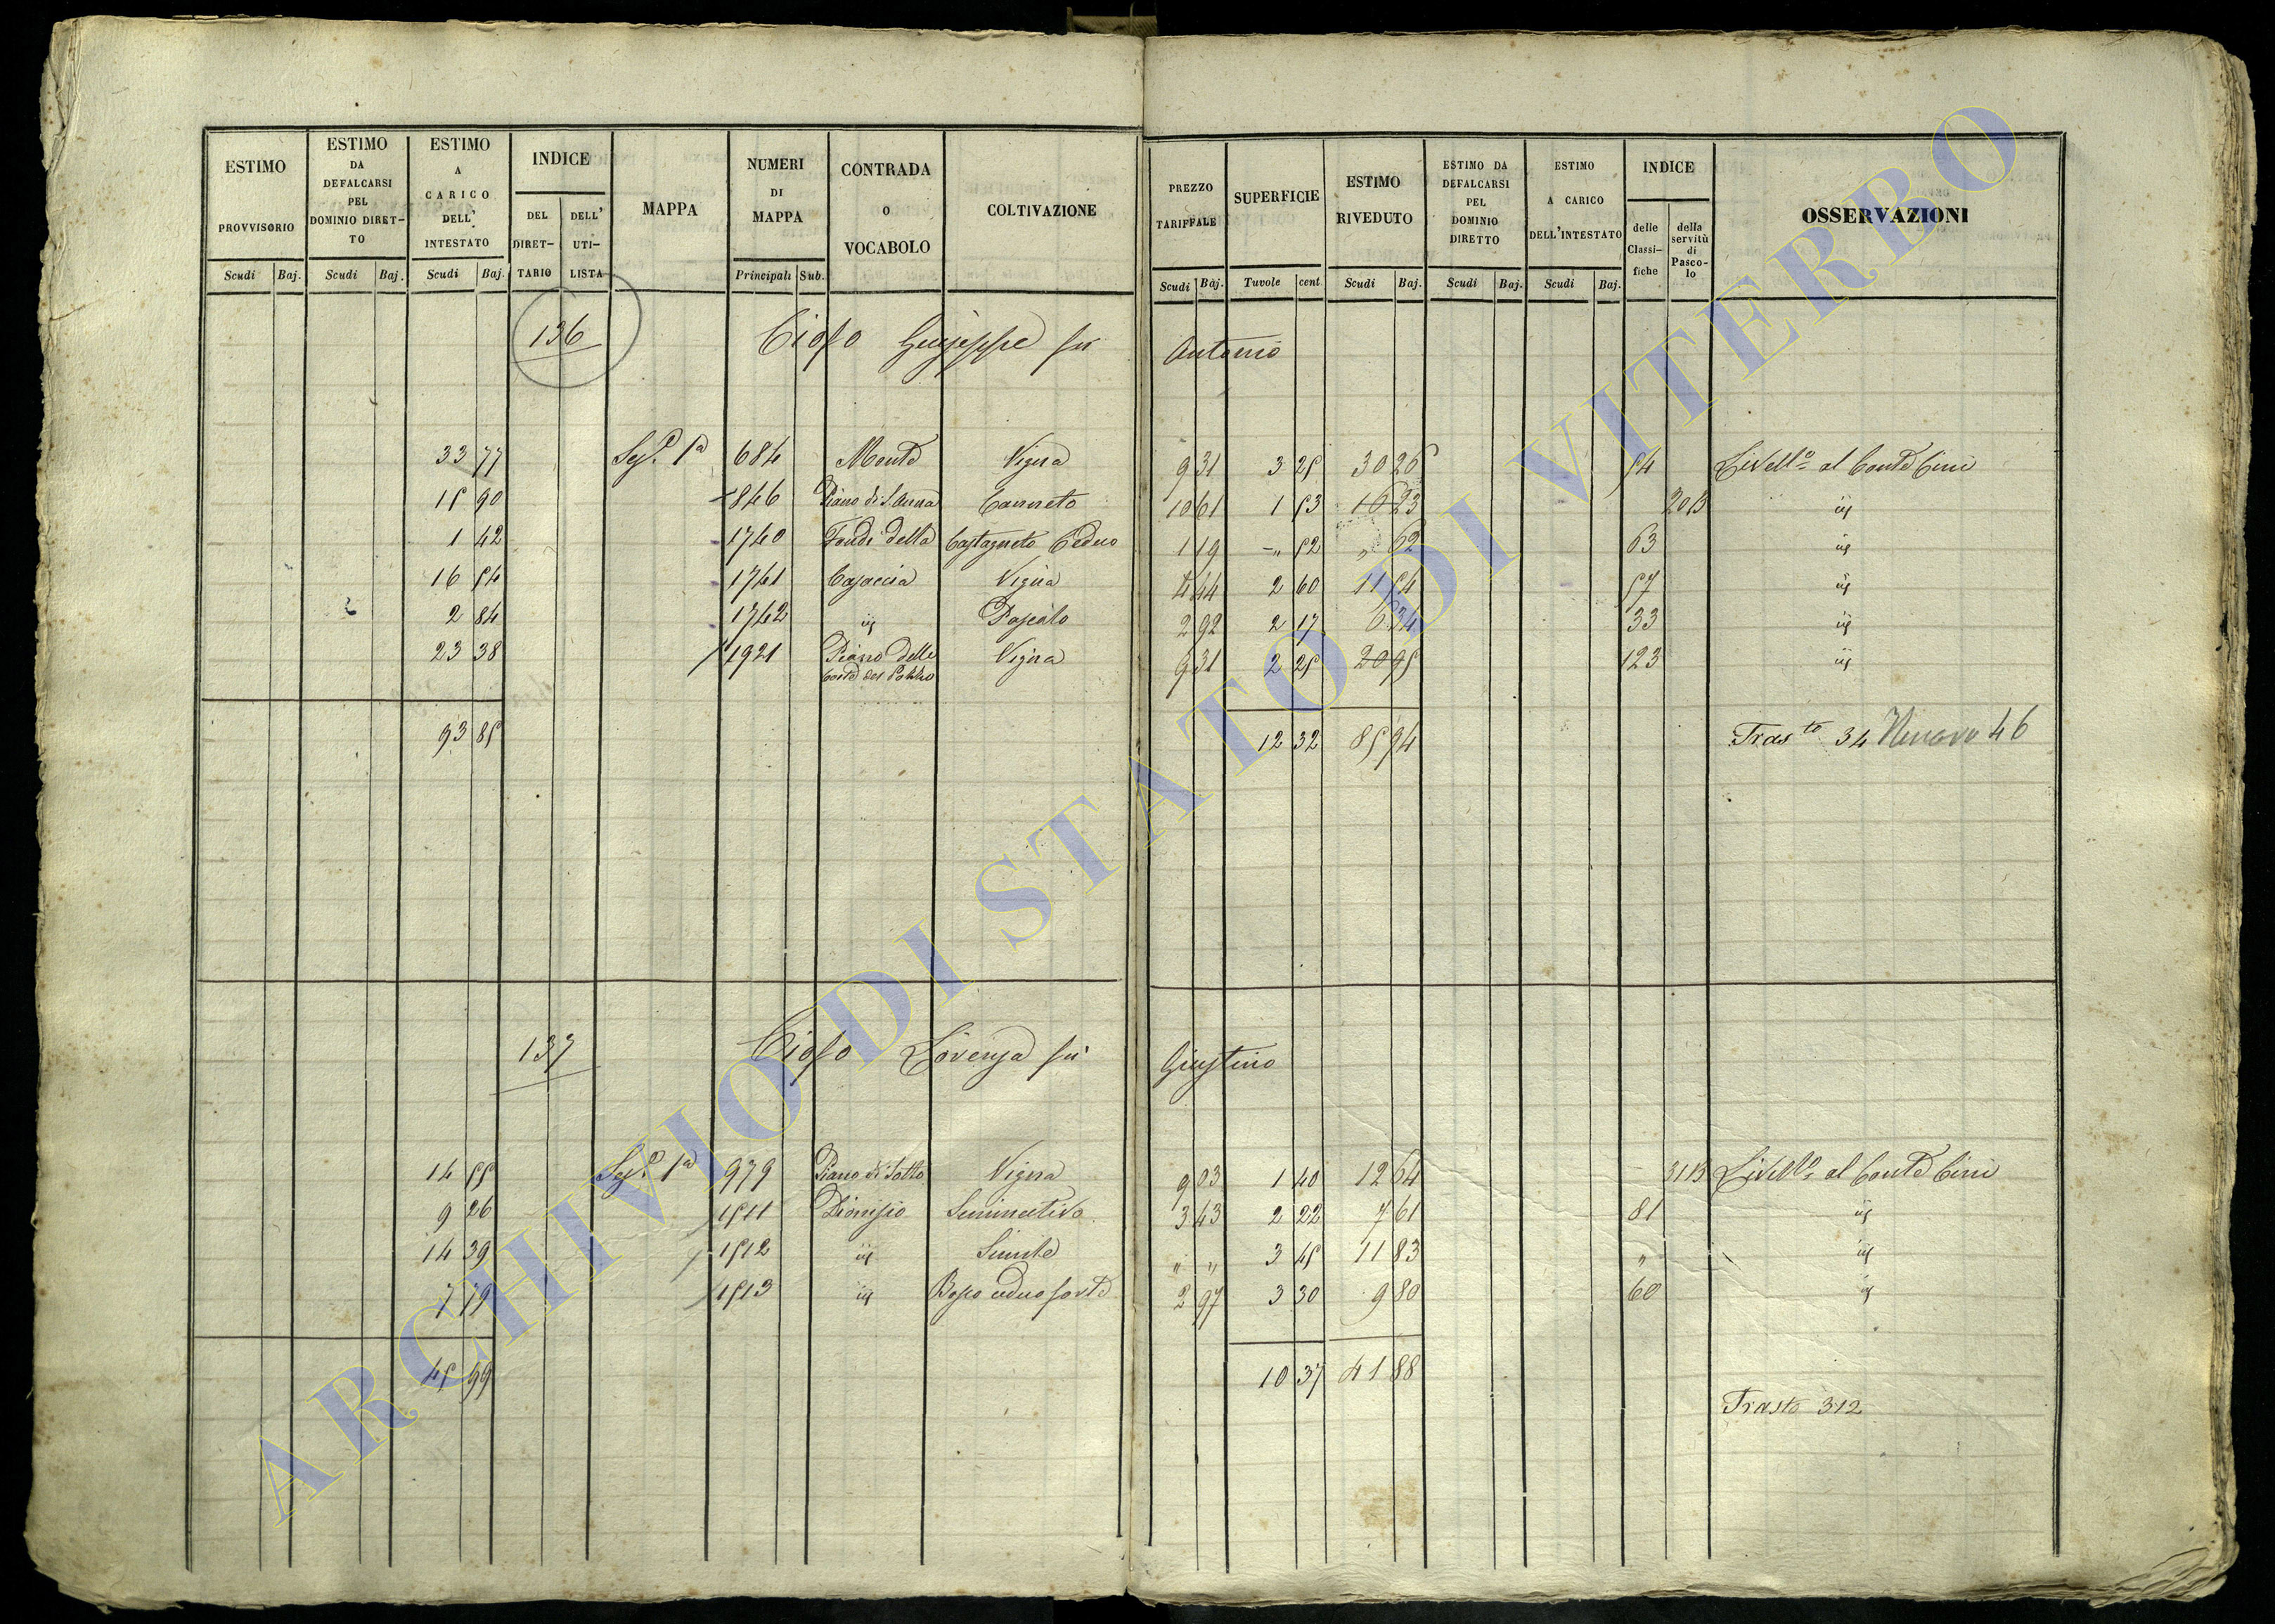 ESTIMO PROVVISORIO Scudi Baj.
ESTIMO DA DEFALCARSI PEL DOMINIO DIRET-TO Scudi Baj.
ESTIMO A CARICO DELL' INTESTATO Scudi Baj.
INDICE DEL DIRET-TARIO DELL' UTI-LISTA
MAPPA
NUMERI DI MAPPA Principali Sub.
CONTRADA O VOCABOLO
COLTIVAZIONE
PREZZO TARIFFALE Scudi Baj.
SUPERFICIE Tavole cent
ESTIMO RIVEDUTO Scudi Baj.
ESTIMO DA DEFALCARSI PEL DOMINIO DIRETTO Scudi Baj.
ESTIMO A CARICO DELL'INTESTATO Scudi Baj.
INDICE delle Classi-fiche della servitù di Pasco-lo
OSSERVAZIONI
136 Ciofo Giuseppe fu Antonio
33 77 Sez.e 1a 684 Monte Vigna 9 31 3 25 30 26 54 Livello al Conte Cini
15 90 846 Piano di S. Anna Canneto 10 61 1 53 16 23 20 B id
1 42 1740 Fondi della Castagneto Ceduo 1 19 -" 52 " 62 63 id
16 54 1741 Casaccia Vigna 4 44 2 60 11 54 57 id
2 84 1742 id Pascolo 2 92 2 17 6 34 33 id
23 38 1921 Piano delle Vigna 9 31 2 25 20 95 123 id
93 85 12 32 85 94 Tras.to 34 46
137 Ciofo Lorenza fu Giustino
14 55 Sez.e 1a 979 Piano di Sotto Vigna 9 03 1 40 12 64 31 B Livello al Conte Cini
9 26 1511 Dionisio Seminativo 3 43 2 22 7 61 81 id
14 39 1512 id Simile " " 3 45 11 83 " id
7 79 1513 id Bosco ceduo forte 2 97 3 30 9 80 60 id
45 99 10 37 41 88
Trasto 312
ARCHIVIO DI STATO DI VITERBO